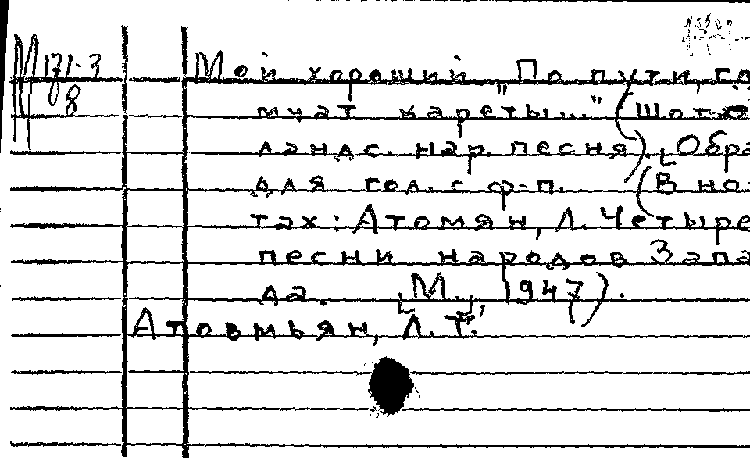 М 171-3
8
Мой хороший. "По пути, гд
мчат кареты..." (Шот-
ландс. нар. песня). [Обра
для гол. с ф-п. (В но-
тах: Атомян, Л. Четыре
песни народов Запа
да. [М.], 1947).
Атовмьян, Л. Т.